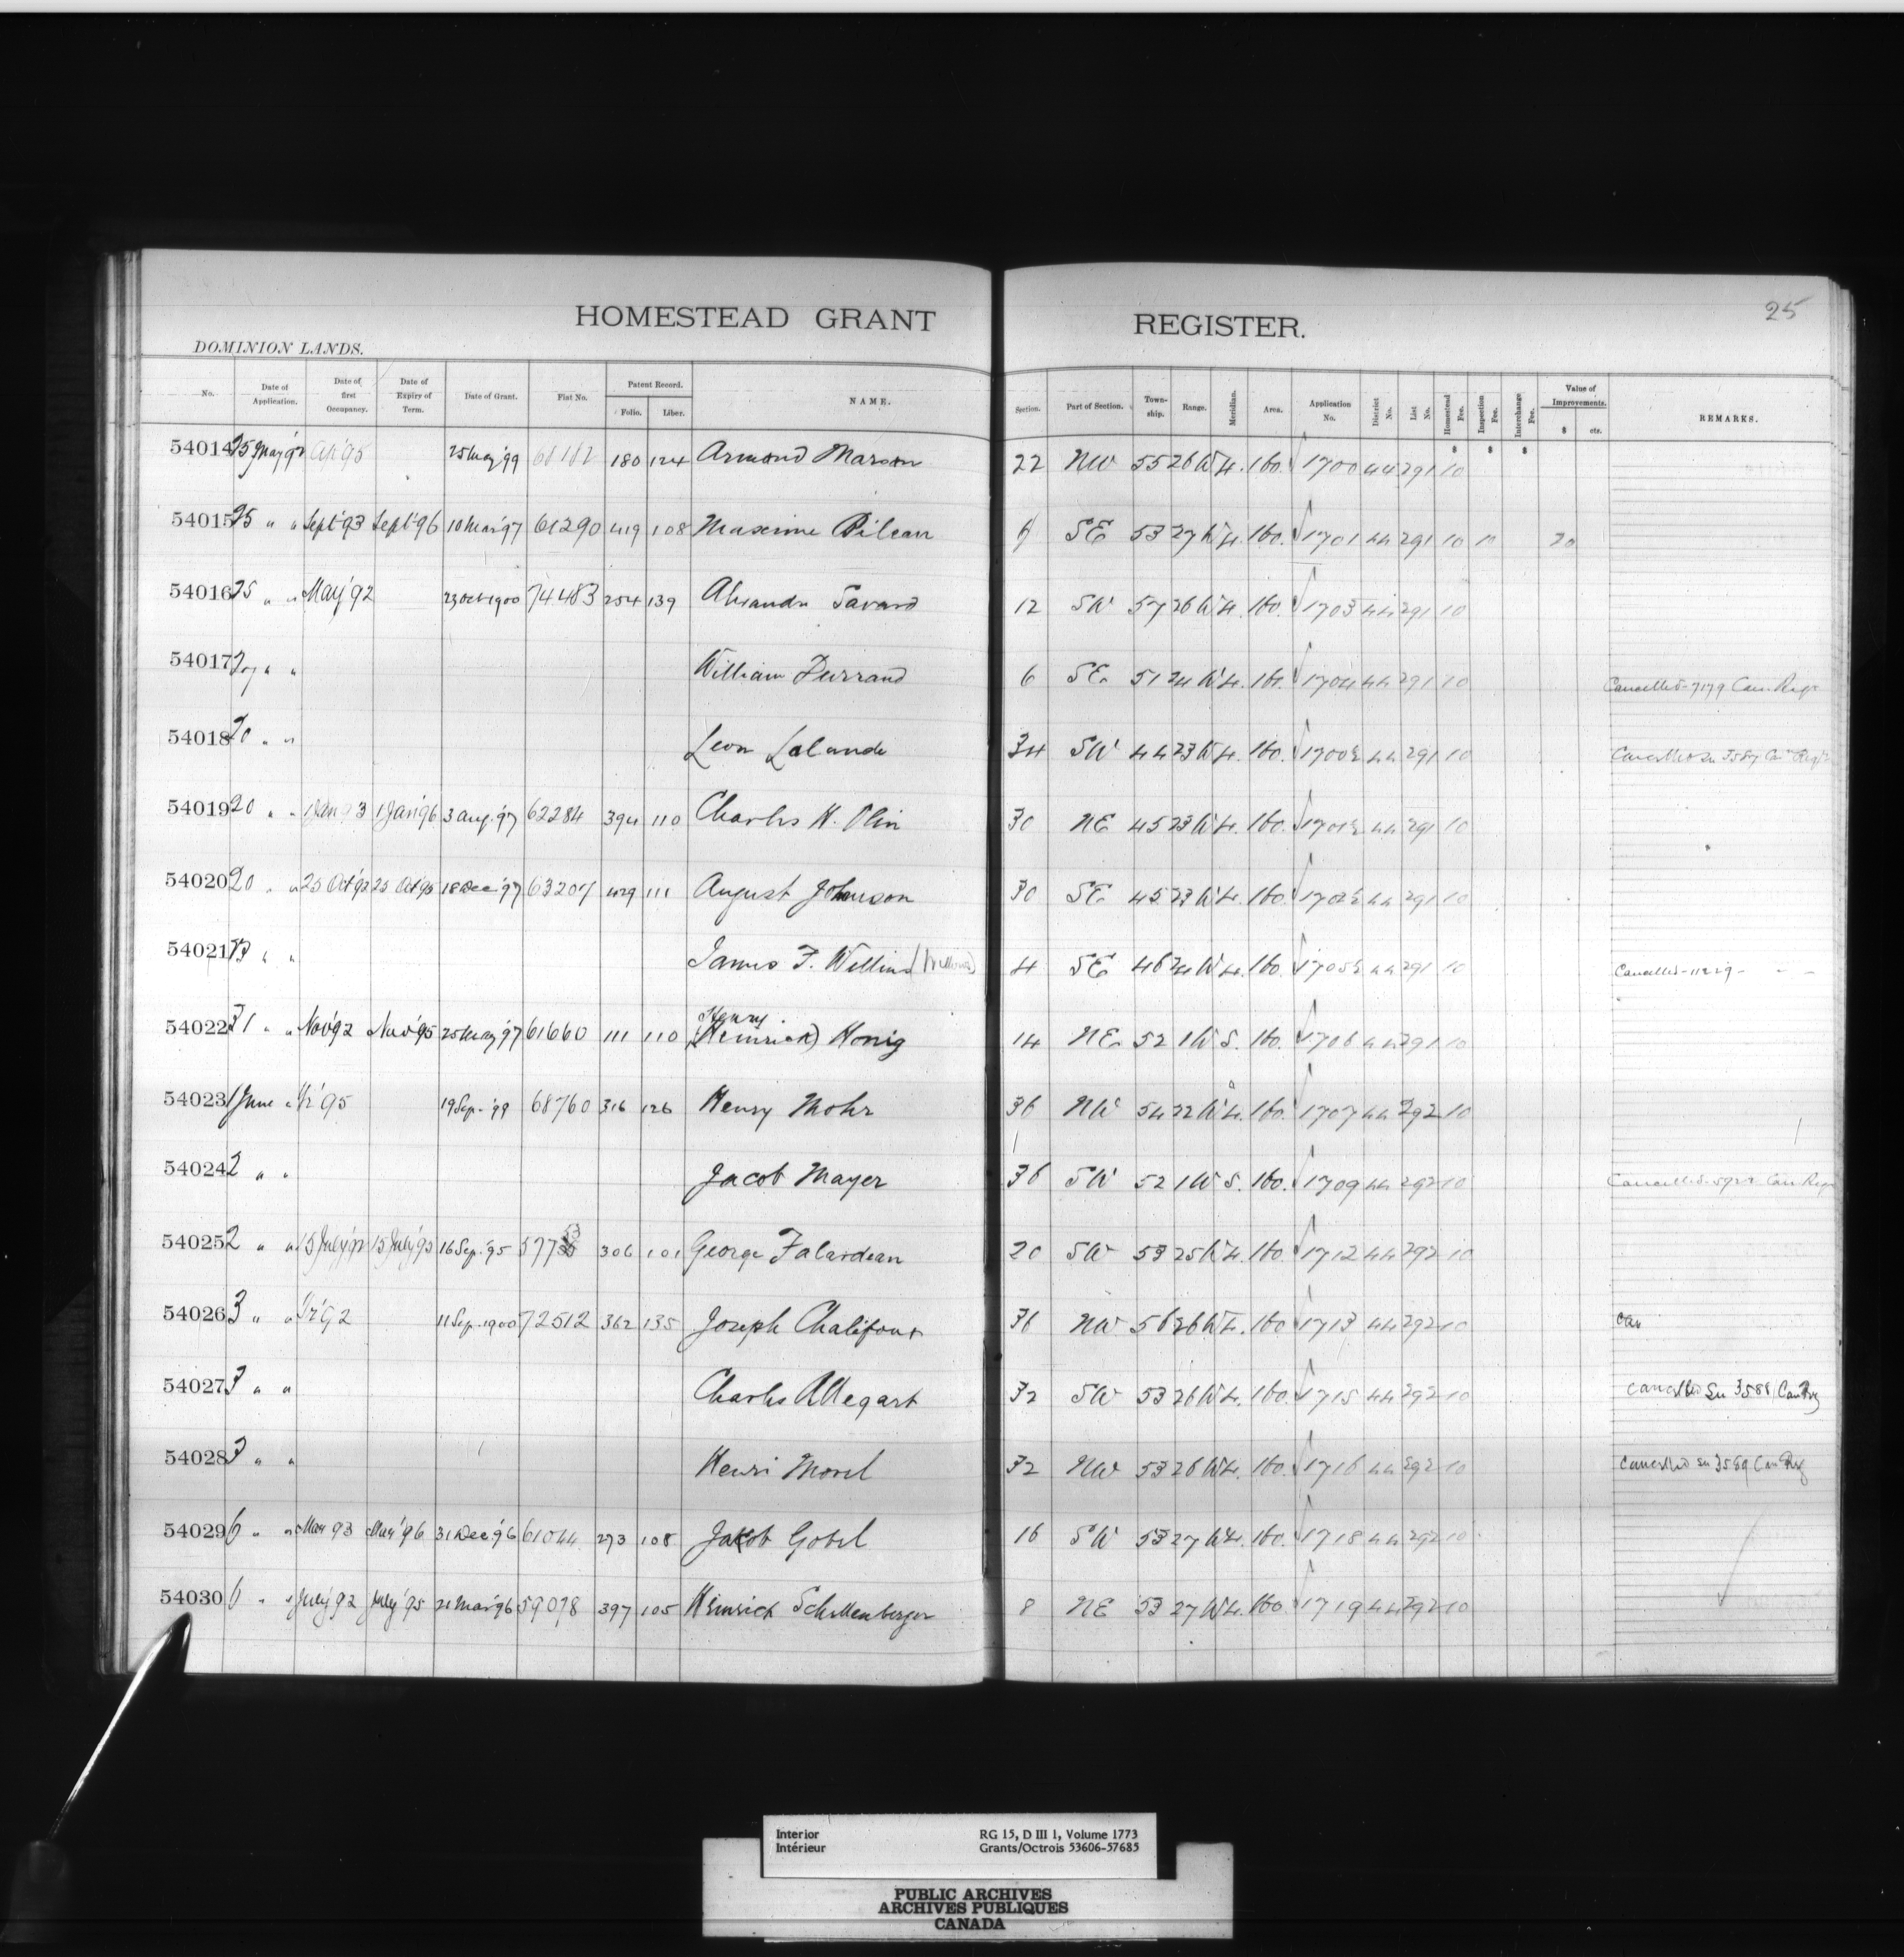 25
HOMESTEAD GRANT REGISTER.
DOMINION LANDS.
No. Date of Application. Date of first Occupancy. Date of Expiry of Term. Date of Grant. Fiat No. Patent Record. Folio. Liber. NAME. Section. Part of Section. Township. Range. Meridian. Area. Application No. District No. List No. Homestead Fee. Inspection Fee. Interchange Fee. Value of Improvements. $ cts. REMARKS.
54014 25 May '92 Ap '95 25 May '99 68182 180 124 Armond Marson 22 NW 55 26 W 4. 160. 1700 44 291 10
54015 25 " " Sept '93 Sept '96 10 Mar '97 61290 419 108 Maxime Pilean SE 53 27 W 4. 160. 1701 44 291 10 10 20
54016 25 " " May '92 23 Oct 1900 74483 254 139 Savard 12 SW 57 26 W 4. 160. 1703 44 291 10
54017 27 " " William Durrand 6 SE. 51 24 W 4. 1704 44 291 10 Cancelled - 7179 Can. Regr
54018 20 " " Leon Lalande 34 SW 44 23 W 4. 160. 1700½ 44 291 10 Cancelled Su 3587 Can Regr
54019 20 " " 1 Jan 93 1 Jan '96 3 Aug. '97 62284 394 110 Charles H. Olin 30 NE 45 23 W 4. 160. 1701½ 44 291 10
54020 20 " " 25 Oct '92 25 Oct '95 18 Dec '97 63207 429 111 August Johnson 30 SE 45 23 W 4. 160. 1702½ 44 291 10
54021 " " James F. Willins (Willows) 4 SE 46 24 W 4. 160. 1705½ 44 291 10 Cancelled - 11229 - " "
54022 31 " " Nov '92 Nov '95 25 May '97 61660 111 110 Henry (Heinrich) Honig 14 NE. 52 1 W 5. 160. 1706 44 291 10
54023 1 June " '95 19 Sep. '99 68760 316 126 Henry Mohr 36 NW 54 22 W 4. 160. 1707 44 292 10
54024 2 " " Jacob Mayer 36 SW 52 1 W 5. 160. 1709 44 292 10 Cancelled - Can Regr
54025 2 " " 15 July '92 15 July '95 16 Sep. '95 57753 306 101 George Falardeau 20 SW 53 25 W 4. 160. 1712 44 292 10
54026 3 " " '92 11 Sep. 1900 72512 362 135 Joseph Chalifoux 36 NW 56 26 W 4. 160 1713 44 292 10 Can
54027 3 " " Charles Allegart 32 SW 53 26 W 4. 160. 1715 44 292 10 Cancelled Su 3588 Can Reg
54028 3 " " Henri Morel 32 NW 53 26 W 4. 160. 1716 44 292 10 Cancelled Su 3589 Can Reg
54029 6 " " Mar 93 Mar '96 31 Dec '96 61044 273 108 Jakob Gobel 16 SW 53 27 W 4. 160. 1718 44 292 10
54030 6 " " July '92 July '95 21 Mar '96 59078 397 105 Heinrich Schellenberger 8 NE 53 27 W 4. 160 1719 44 292 10
Interior RG 15, D III 1, Volume 1773
Intérieur Grants/Octrois 53606-57685
PUBLIC ARCHIVES
ARCHIVES PUBLIQUES
CANADA